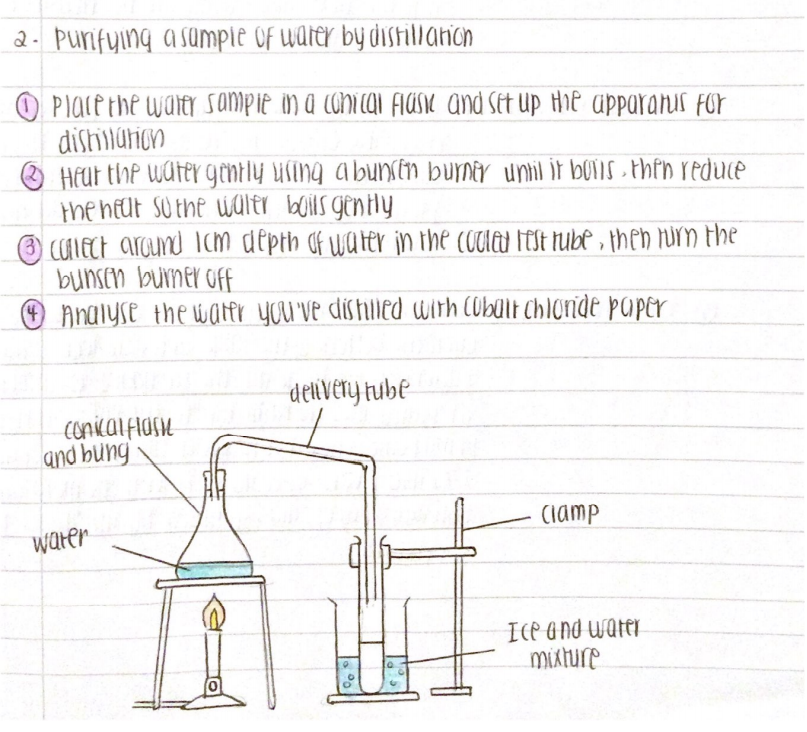 2- Purifying a sample of water by distillation
① Place the water sample in a conical flask and set up the apparatus for
distillation
② Heat the water gently using a bunsen burner until it boils, then reduce
the heat so the water boils gently
③ collect around 1cm depth of water in the cooled test tube, then turn the
bunsen burner off
④ Analyse the water you've distilled with cobalt chloride paper
delivery tube
conical flask
and bung
clamp
water
Ice and water
mixture